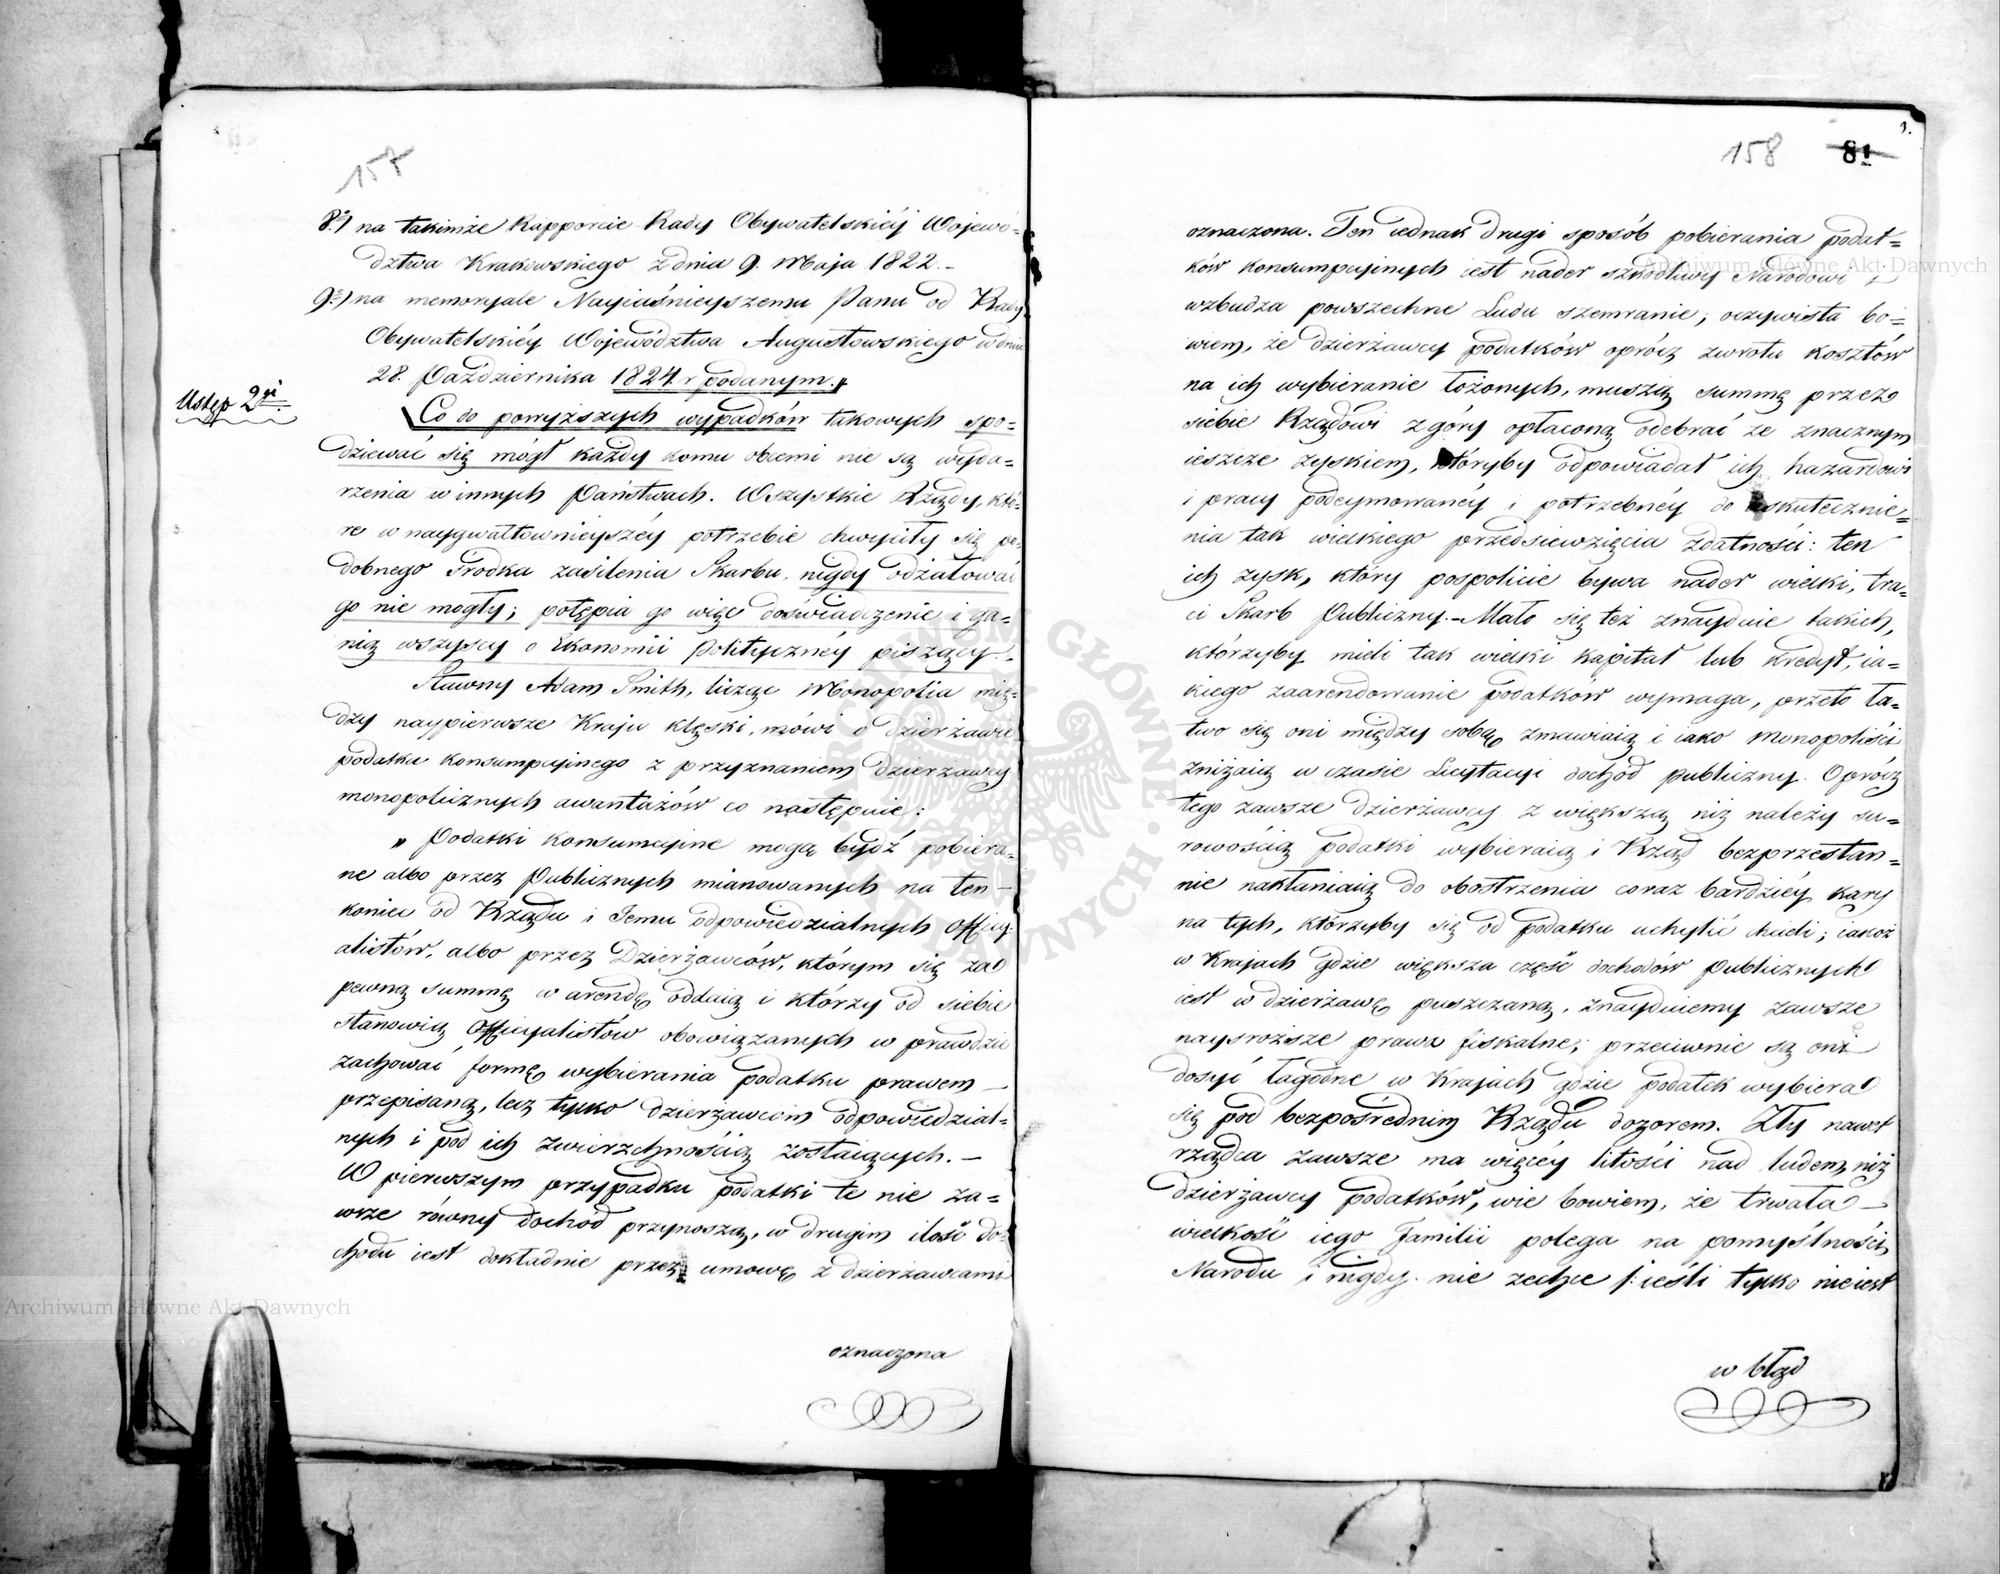 158
8º) na takimże Rapporcie Rady Obywatelskiéy Wojewó=
dztwa Krakowskiego z dnia 9. Maja 1822. –
9º) na memoryale Nayiaśnieyszemu Panu od Rady
Obywatelskiéy Województwa Augustowskiego w dniu
28. Października 1824 r podanym.
Ustęp 2gi.
Co do powyższych wypadków takowych spo=
dziewać się mógł każdy komu obcemi nie są wyda=
rzenia w innych Państwach. Wszystkie Rządy, któ=
re w naygwałtownieyszéy potrzebie chwyciły się po=
dobnego środka zasilenia Skarbu, nigdy odżałować
go nie mogły; potępia go więc doświadczenie i ga=
nią wszyscy o Ekonomii politycznéy piszący. –
Sławny Adam Smith, licząc Monopolia mię=
dzy naypierwsze Kraju klęski, mówi o dzierżawie
podatku konsumpcyinego z przyznaniem dzierżawcy
monopolicznych awantażów co następuie:
„ Podatki konsumcyine mogą bydź pobiera=
ne albo przez Publicznych mianowanych na ten –
koniec od Rządu i Jemu odpowiedzialnych Officy
alistów, albo przez Dzierżawców, którym się za
pewną summę w arendę oddaią i którzy od siebie
stanowią Officyalistów obowiązanych w prawdzie
zachować formę wybierania podatku prawem –
przepisaną, lecz tylko dzierżawcom odpowiedzial=
nych i pod ich zwierzchnością zostaiących. –
W pierwszym przypadku podatki te nie za=
wsze równy dochód przynoszą, w drugim ilość do=
chodu iest dokładnie przez umowę z dzierżawcami
oznaczona
158 81
oznaczona. Ten iednak drugi sposób pobierania podat=
ków konsumpcyinych iest nader szkodliwy Narodowi i
wzbudza powszechne Ludu szemranie; oczywista bo=
wiem, że dzierżawcy podatków oprócz zwrotu kosztów
na ich wybieranie łożonych, muszą summę przez
siebie Rządowi z góry opłaconą odebrać ze znacznym
ieszcze zyskiem, któryby odpowiadał ich hazardowi
i pracy podeymowanéy i potrzebnéy do uskutecznie=
nia tak wielkiego przedsiewzięcia zdatności: ten
ich zysk, który pospolicie bywa nader wielki, tra=
ci Skarb Publiczny. – Mało się też znayduie takich,
którzyby mieli tak wielki kapitał lub kredyt, ia=
kiego zaarendowanie podatkow wymaga, przeto ła=
two się oni między sobą zmawiaią i iako monopoliści
zniżaią w czasie Licytacyi dochód publiczny. Oprócz
tego zawsze dzierżawcy z większą niż należy su=
rowością podatki wybieraią i Rząd bezprzestan=
nie nakłaniaią do obostrzenia coraz bardziéy kary
na tych, którzyby się od podatku uchylić chcieli; iakoż
w Krajach gdzie większa część dochodów publicznych
iest w dzierżawę puszczaną, znayduiemy zawsze
naysroższe prawa fiskalne; przeciwnie są one
dosyć łagodne w Krajach gdzie podatek wybiera
się pod bezpośrednim Rządu dozorem. Zły nawet
rządca zawsze ma więcéy litości nad ludem, niż
dzierżawcy podatków, wie bowiem, że trwała –
wielkość iego Familii polega na pomyślności
Narodu i nigdy nie zechce /: ieśli tylko nie iest
w błąd